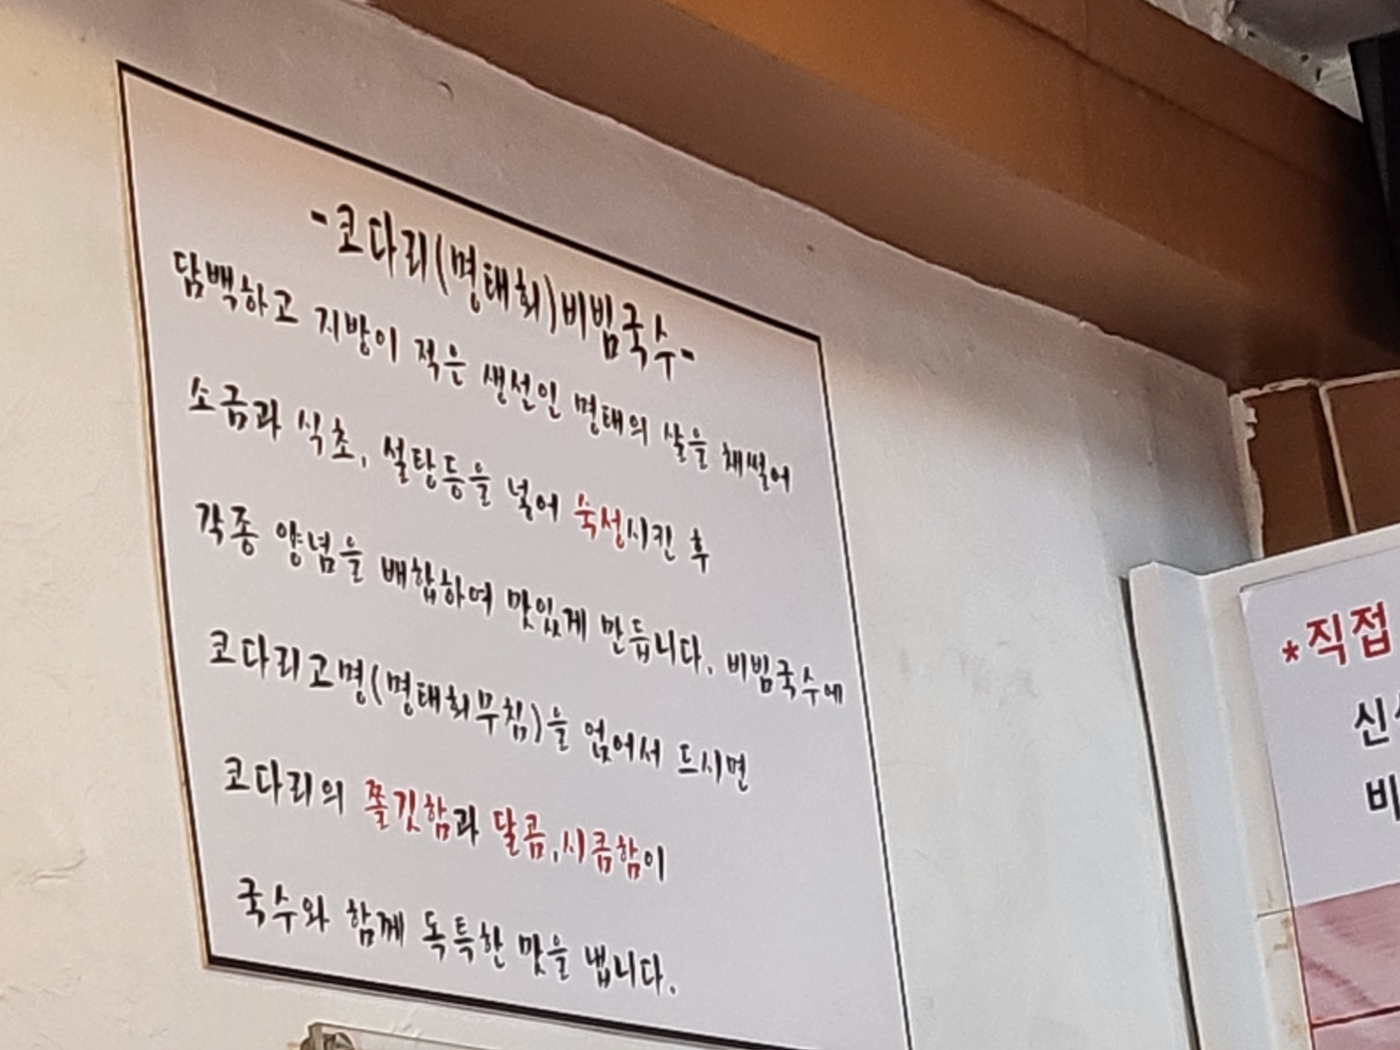 -코다리(명태회)비빔국수-
담백하고 지방이 적은 생선인 명태의 살을 채썰어
소금과 식초, 설탕등을 넣어 숙성시킨 후
각종 양념을 배합하여 맛있게 만듭니다. 비빔국수에
코다리고명(명태회무침)을 얹어서 드시면
코다리의 쫄깃함과 달콤,시큼함이
국수와 함께 독특한 맛을 냅니다.
*직접
신
비